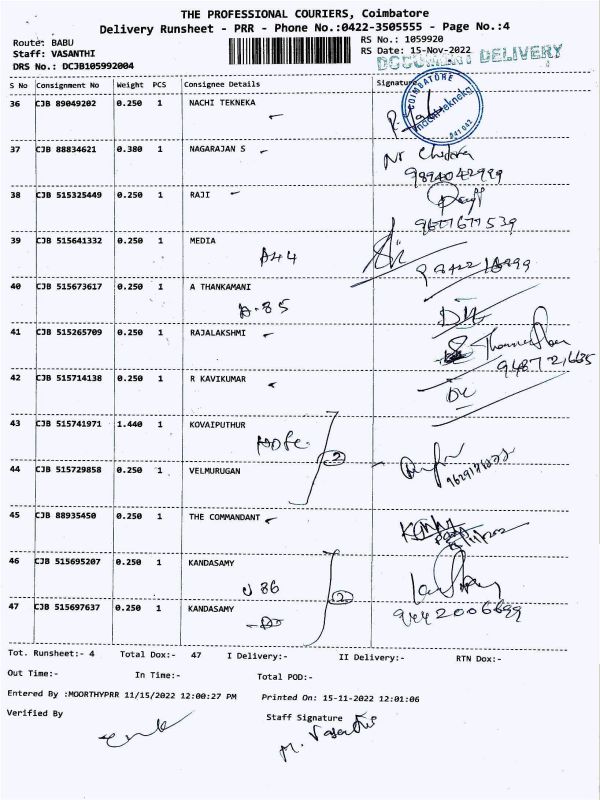 THE PROFESSIONAL COURIERS, Coimbatore
Delivery Runsheet - PRR - Phone No.:0422-3505555 - Page No.:4
Route: BABU
RS No.: 1059920
Staff: VASANTHI
RS Date: 15-Nov-2022
DRS No.: DCJB105992004
DOCUMENT DELIVERY
S No Consignment No Weight PCS Consignee Details Signature
36 CJB 89049202 0.250 1 NACHI TEKNEKA
COIMBATORE
641 042
37 CJB 88834621 0.380 1 NAGARAJAN S
9894042999
38 CJB 515325449 0.250 1 RAJI
9677677539
39 CJB 515641332 0.250 1 MEDIA
A44
40 CJB 515673617 0.250 1 A THANKAMANI
A-85
41 CJB 515265709 0.250 1 RAJALAKSHMI
9487721665
42 CJB 515714138 0.250 1 R KAVIKUMAR
43 CJB 515741971 1.440 1 KOVAIPUTHUR
HDFC
2
44 CJB 515729858 0.250 1 VELMURUGAN
45 CJB 88935450 0.250 1 THE COMMANDANT
46 CJB 515695207 0.250 1 KANDASAMY
J 86
2
47 CJB 515697637 0.250 1 KANDASAMY
9442006699
Tot. Runsheet:- 4 Total Dox:- 47 I Delivery:- II Delivery:- RTN Dox:-
Out Time:- In Time:- Total POD:-
Entered By :MOORTHYPRR 11/15/2022 12:00:27 PM Printed On: 15-11-2022 12:01:06
Verified By Staff Signature
M. Vasanthi